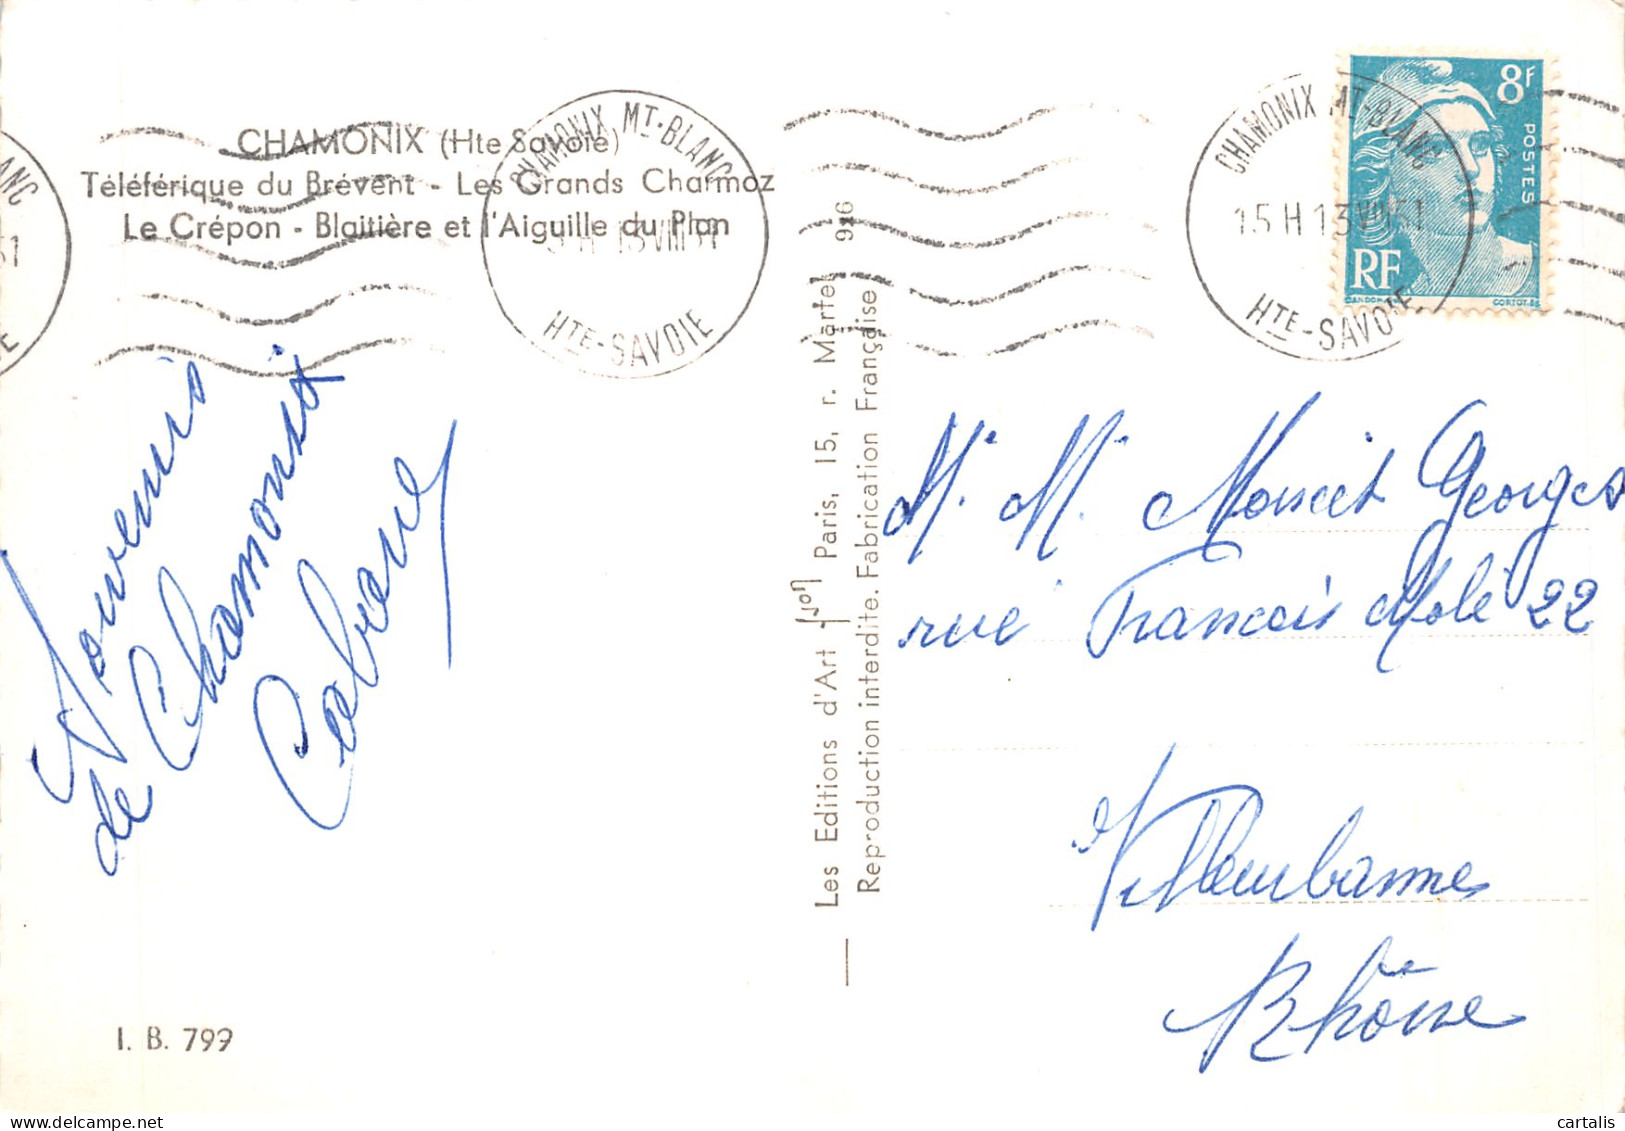 CHAMONIX (Hte Savoie)
Téléférique du Brévent - Les Grands Charmoz
Le Crépon - Blaitière et l'Aiguille du Plan
CHAMONIX MT-BLANC
13 VIII 51
HTE-SAVOIE
CHAMONIX MT-BLANC
15 H 13 VIII 51
HTE-SAVOIE
8F
POSTES
RF
GANDON
CORTOT-SC
Souvenir
de Chamonix
Les Editions d'Art Yvon Paris, 15, r. Martel
Reproduction interdite. Fabrication Française
Mr. M. Georges
rue Francois Molé 22
Villeurbanne
Rhône
I. B. 799
cartalis